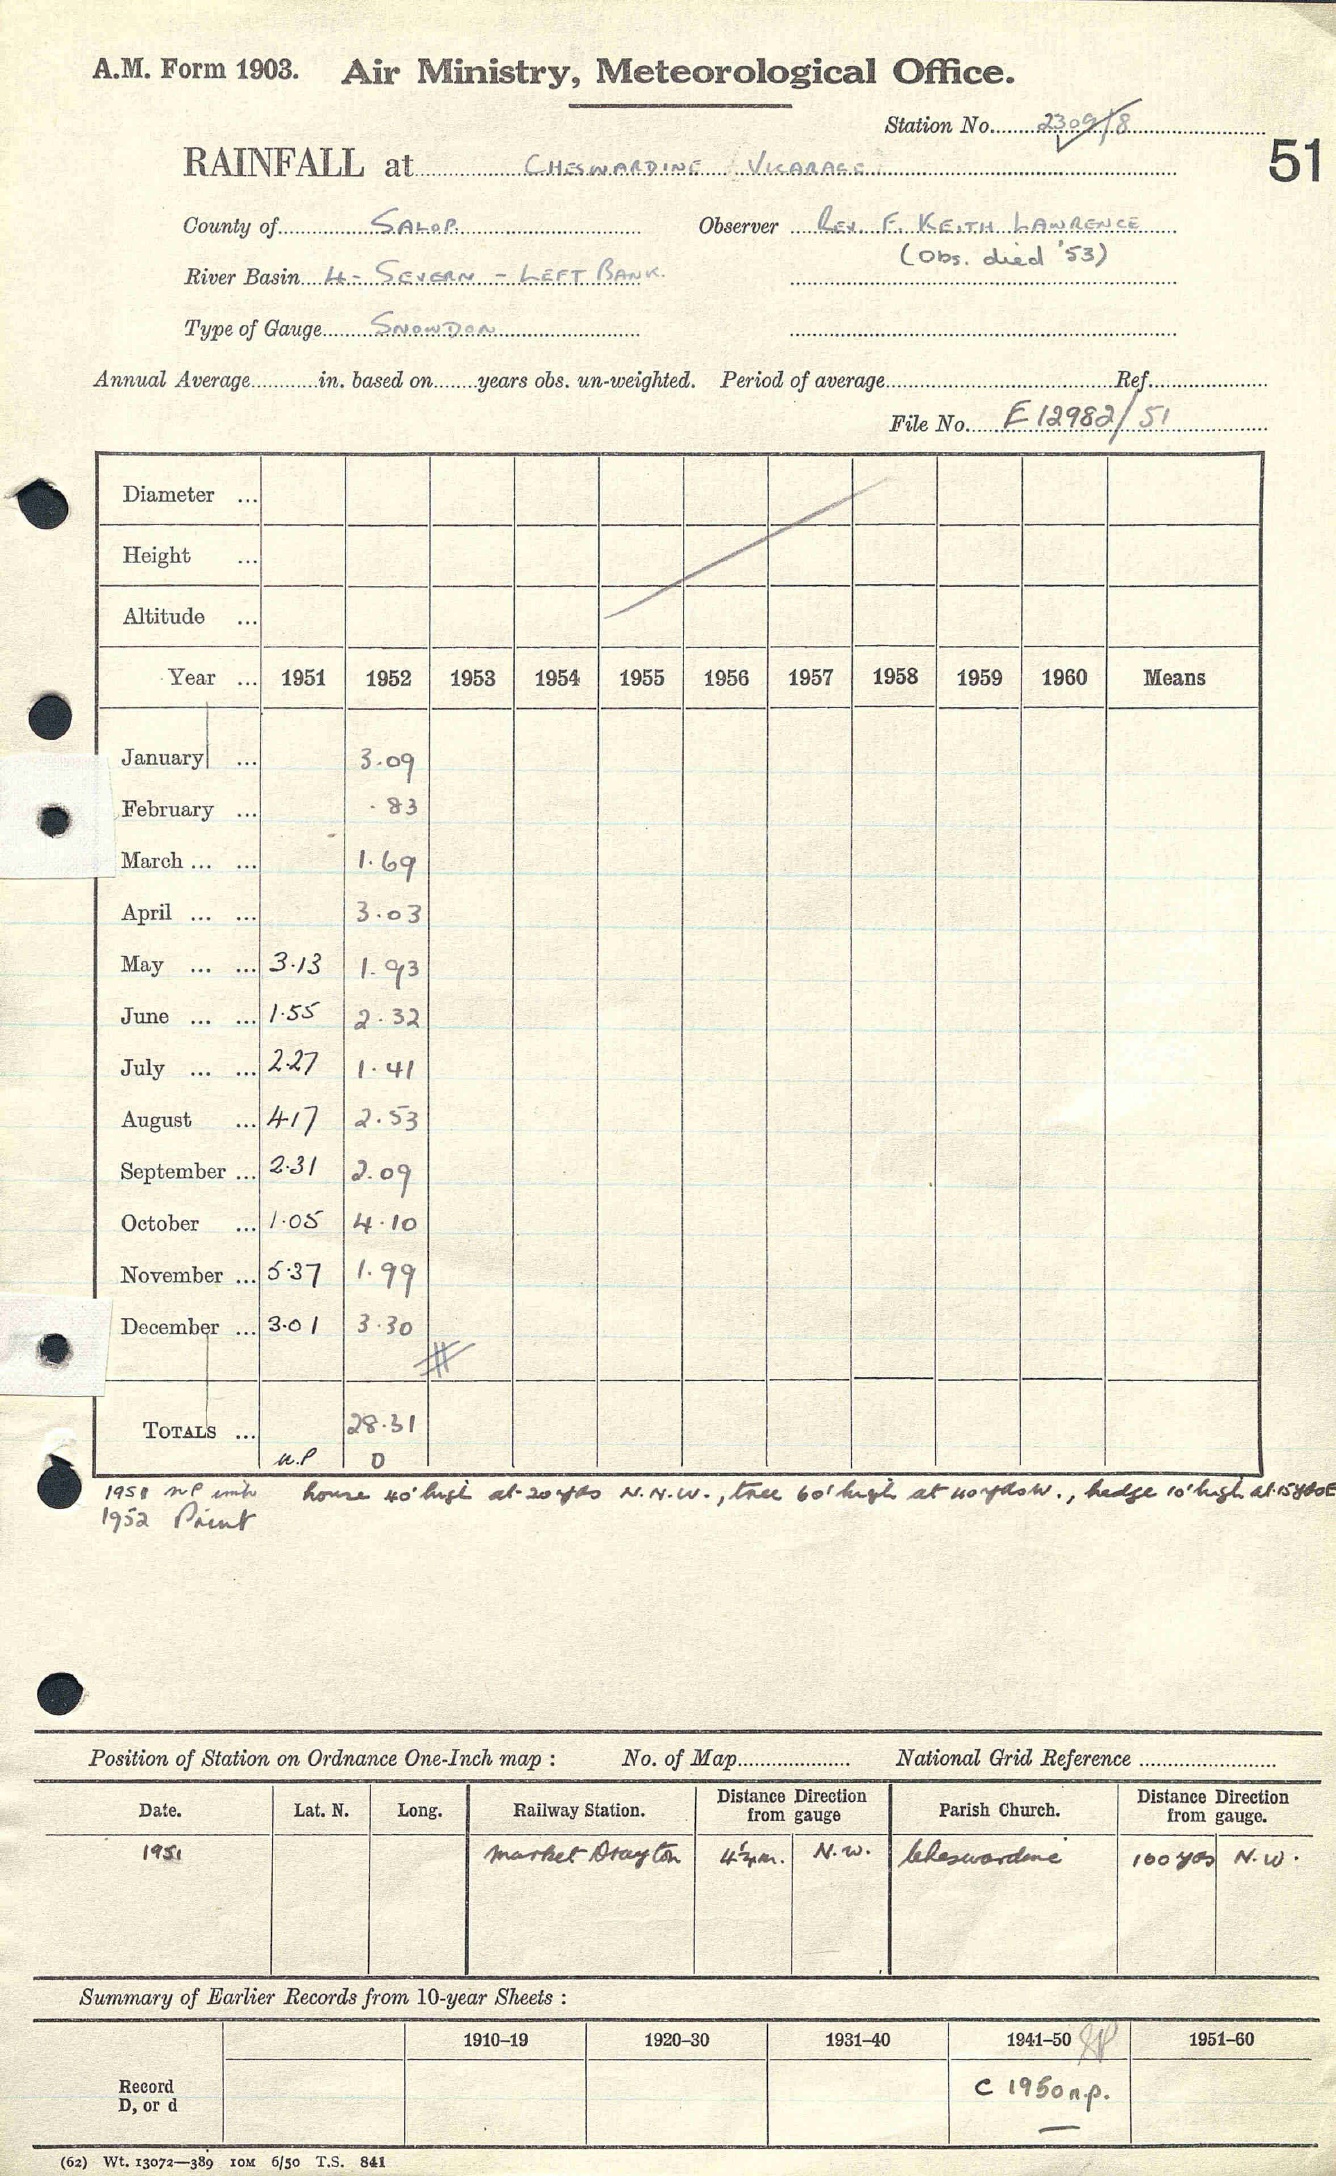 A.M. Form 1903. Air Ministry, Meteorological Office.
Station No. 2309/8
51
RAINFALL at CHESWARDINE VICARAGE
County of SALOP. Observer REV. F. KEITH LAWRENCE
(Obs. died '53)
River Basin 4 - SEVERN - LEFT BANK.
Type of Gauge SNOWDON
Annual Average in. based on years obs. un-weighted. Period of average Ref.
File No. E12982/51
Diameter ...
Height ...
Altitude ...
Year ... 1951 1952 1953 1954 1955 1956 1957 1958 1959 1960 Means
January ... 3.09
February ... .83
March ... ... 1.69
April ... ... 3.03
May ... ... 3.13 1.93
June ... ... 1.55 2.32
July ... ... 2.27 1.41
August ... 4.17 2.53
September ... 2.31 2.09
October ... 1.05 4.10
November ... 5.37 1.99
December ... 3.01 3.30
TOTALS ... 28.31
n.P D
house 40' high at 20 yds N.N.W., tree 60' high at 40 yds W., hedge 10' high at 15 yds E
1952 Print
Position of Station on Ordnance One-Inch map : No. of Map National Grid Reference
Date. Lat. N. Long. Railway Station. Distance Direction from gauge Parish Church. Distance Direction from gauge.
1951 Market Drayton 4½m. N.W. Cheswardine 100 yds N.W.
Summary of Earlier Records from 10-year Sheets :
1910–19 1920–30 1931–40 1941–50 1951–60
Record
D, or d
C 1950 n.p.
(62) Wt. 13072—389 10M 6/50 T.S. 841